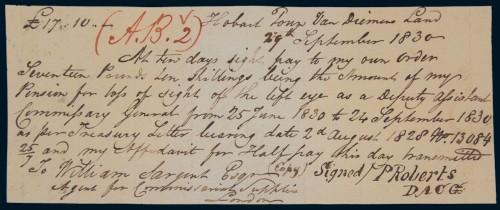 £17..10..- (A.B. 2) Hobart Town Van Diemens Land
29th September 1830
At ten days sight pay to my own order
Seventeen Pounds Ten Shillings being the Amount of my
Pension for loss of sight of the left eye as a Deputy Assistant
Commissary General from 25 June 1830 to 24 September 1830
as per Treasury Letter bearing date 2d August 1828 No. 13084
25/7 and my Affidavit for Half pay this day transmitted
To William Sargent Esqr (Copy) Signed / P Roberts
Agent for Commissariat Supplies DACG
London